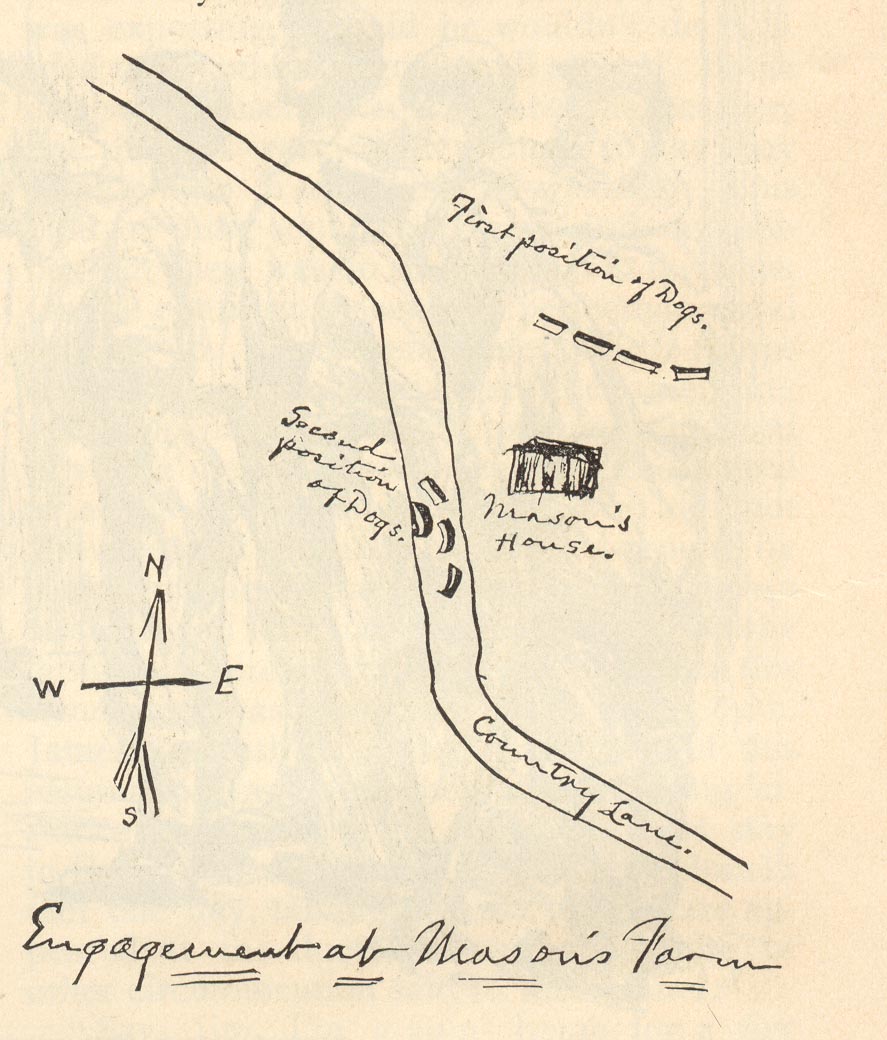 First position of Dogs.
Second
position
of Dogs.
Mason's
House.
N
W
E
S
Country Lane.
Engagement at Mason's Farm